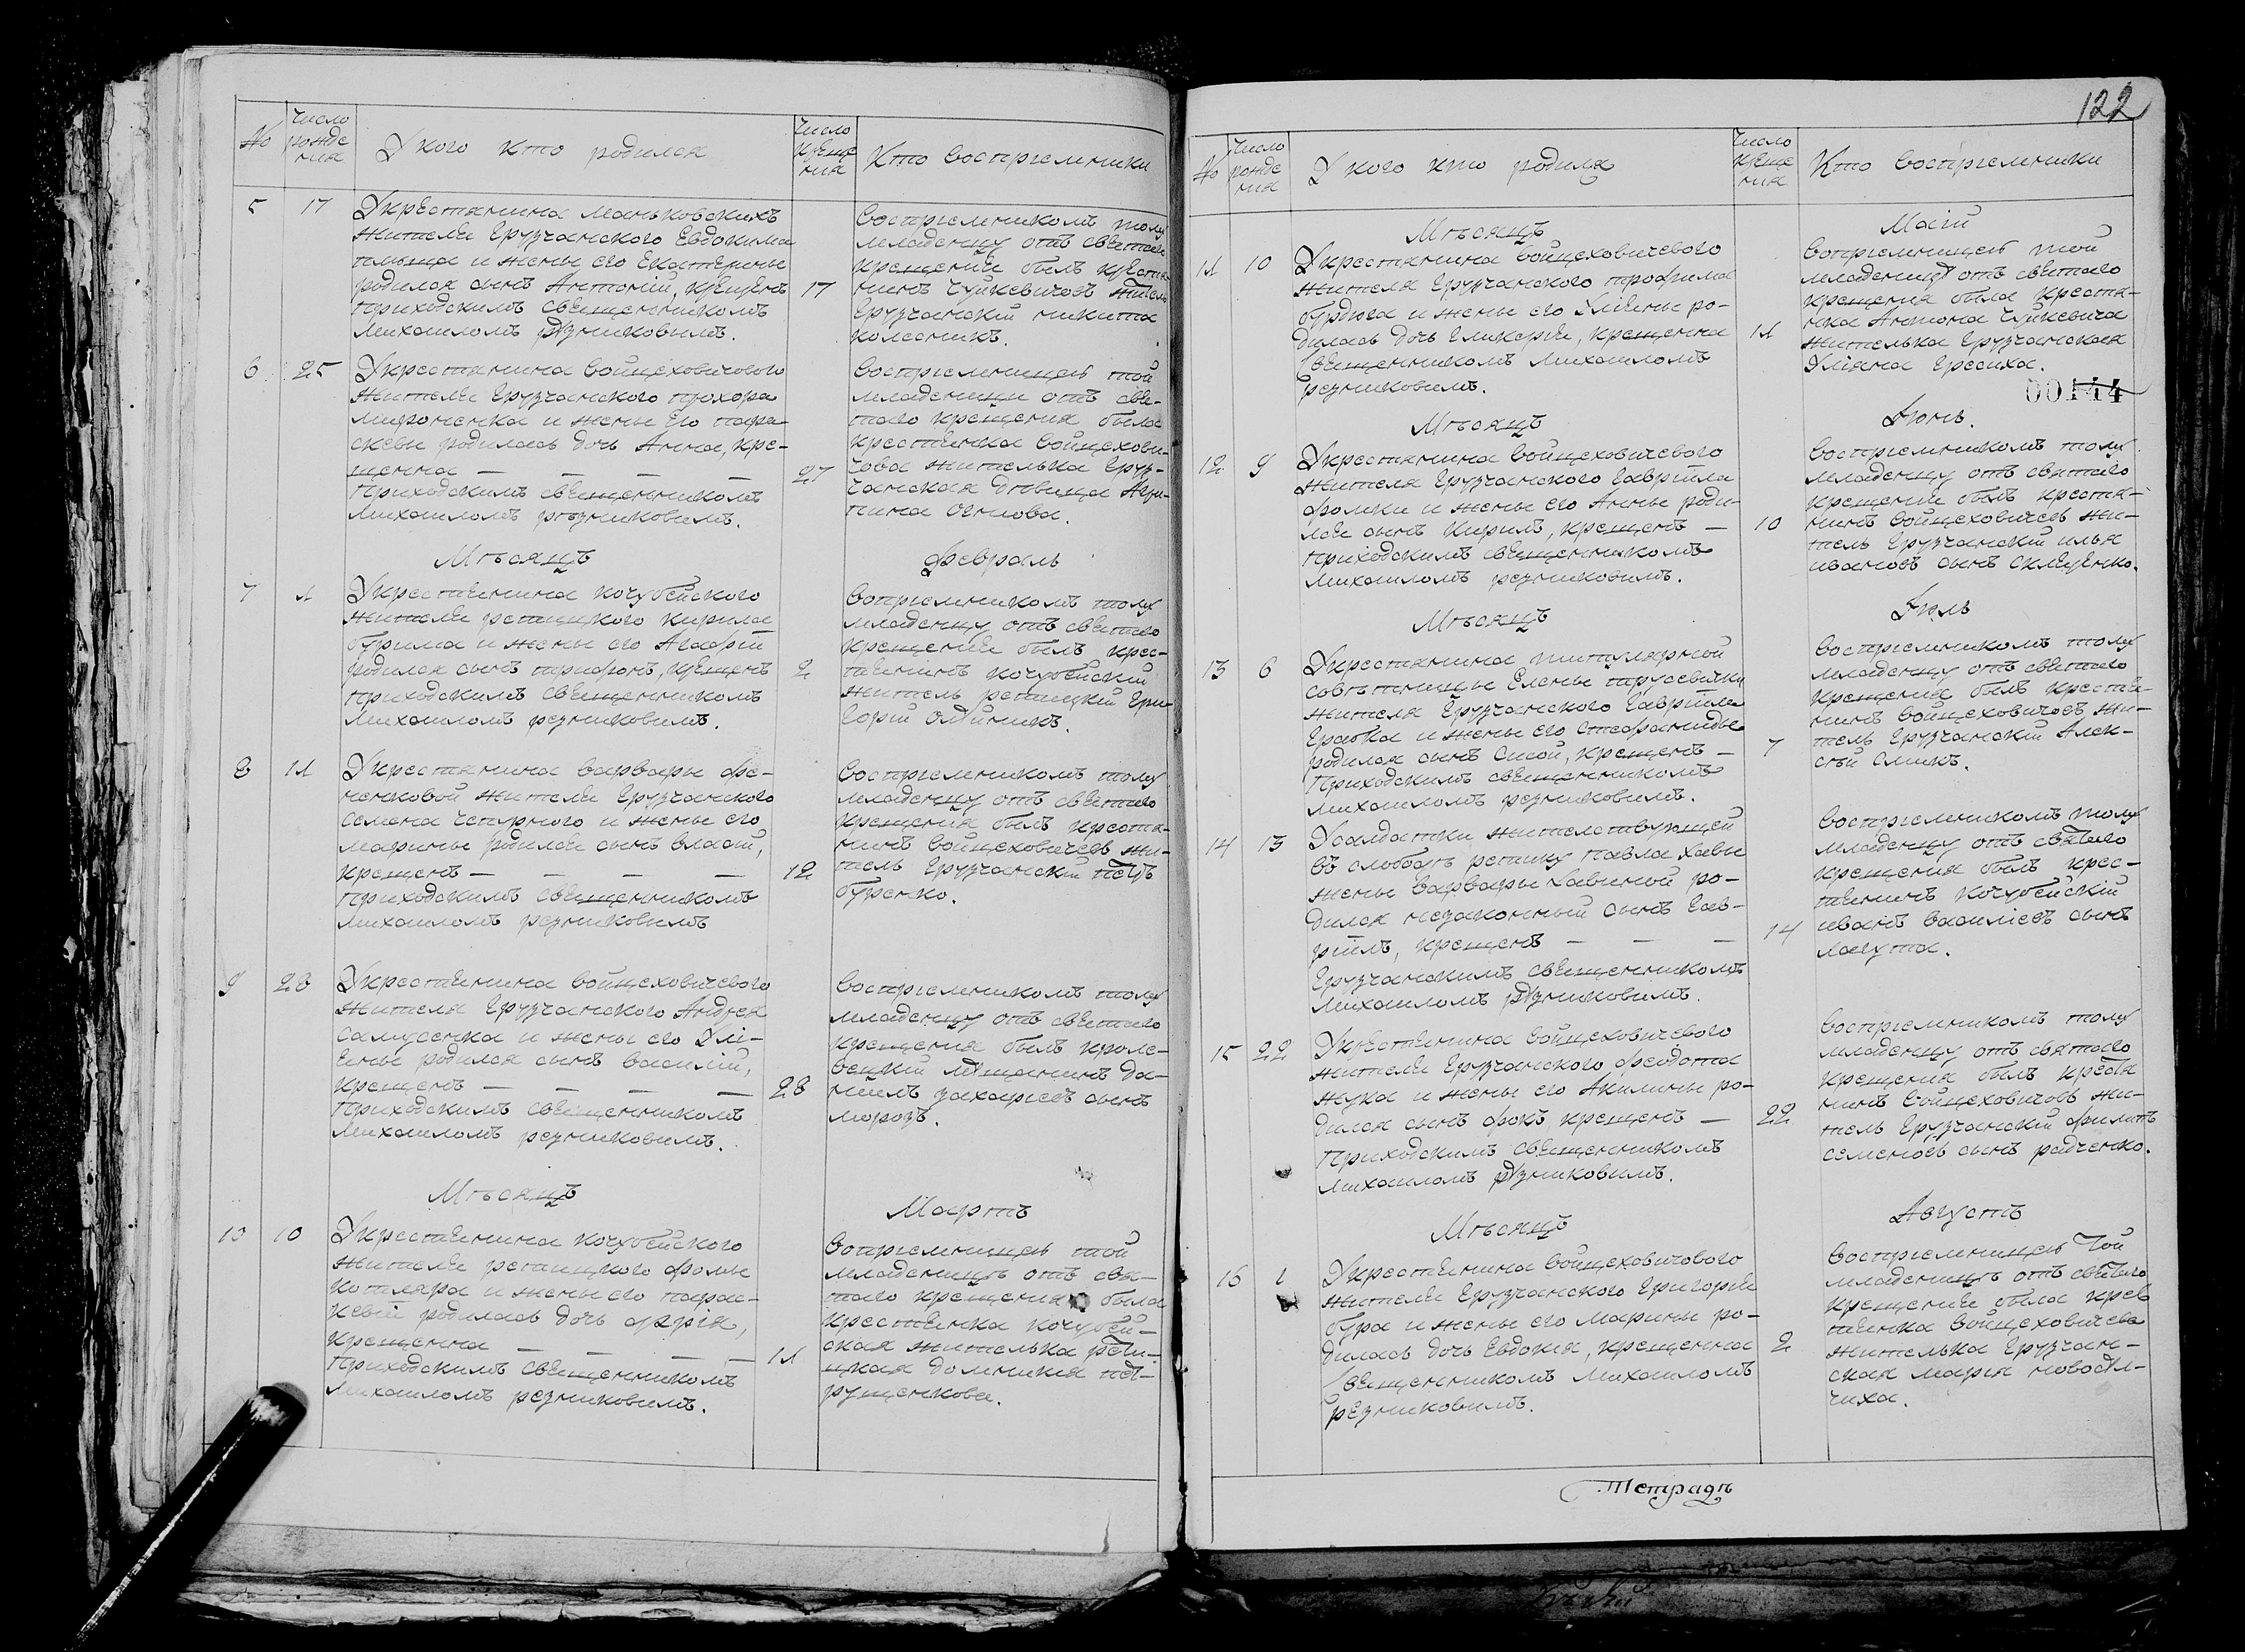 №
число рожде нія
У кого кто родился
число креще нія
Кто воспріемники
5 17
У крестянина маньковскихъ
жителя Грузчанского Евдокима
и жены его Екатерины
родился сынъ Антоній, крещенъ
приходскимъ священникомъ
михаиломъ резниковимъ.
17
Воспріемникомъ тому
младенцу отъ святаго
крещения былъ крестя
нинъ Чуйкевичовъ житель
Грузчанскій никита
колесникъ.
6 25
У крестянина войцеховичового
жителя Грузчанского прохора
мироненка и жены его пара-
скевы родилась дочь Анна, кре-
щенна — — — —
приходскимъ священникомъ
михаиломъ резниковимъ.
27
Воспріемницей той
младенци отъ свя-
таго крещения была
крестянка войцехови-
чова жителька Груз-
чанская дѣвица Агри-
пина
Мѣсяцъ Февраль
7 1
У крестянина кочубейского
жителя репицкого кирила
бурима и жены его Агафіи
родился сынъ парфонъ, крещенъ
приходскимъ священникомъ
михаиломъ резниковимъ.
2
Вопріемникомъ тому
младенцу отъ святаго
крещения былъ крес-
тянинъ кочубейскій
житель репицкій Гри-
горій олійникъ.
8 11
У крестянина варвары фе-
ненковой жителя Грузчанского
семена чепурного и жены его
марины родился сынъ власій,
крещенъ — — — —
приходскимъ священникомъ
михаиломъ резниковимъ
12
Воспріемникомъ тому
младенцу отъ святаго
крещения былъ крестя-
нинъ войцеховичевъ жи-
тель Грузчанскій петръ
буренко.
9 28
У крестянина войцеховичевого
жителя Грузчанского Андрея
самусенка и жены его Улі-
яны родился сынъ василій,
крещенъ — — — —
приходскимъ священникомъ
михаиломъ резниковимъ.
28
Воспріемникомъ тому
младенцу отъ святаго
крещения былъ кроле-
вецкій мѣщанинъ да-
ніилъ захаріевъ сынъ
морозъ.
Мѣсяцъ Мартъ
10 10
У крестянина кочубейского
жителя репицкого фомы
котляра и жены его парас-
кевіи родилась дочь
крещенна — — — —
приходскимъ священникомъ
михаиломъ резниковимъ.
11
Вопріемницей той
младеницѣ отъ свя-
таго крещения была
крестянка кочубей-
ская жителька репи-
цкая домникия пет-
рущенкова.
122
№
число рожде нія
У кого кто родился
число креще нія
Кто воспріемники
Мѣсяцъ Маій
11 10
У крестянина войцеховичевого
жителя Грузчанского трофима
бурдюга и жены его Уліяны ро-
дилась дочь Гликерія, крещенна
священникомъ михаиломъ
резниковимъ.
11
Вопріемницей той
младеницѣ отъ святаго
крещения была крестя-
нка Антона Чуйкевича
жителька Грузчанская
Уліяна
00144
Мѣсяцъ Іюнь.
12 9
У крестянина войцеховичевого
жителя Грузчанского Гавріила
фомики и жены его Анны роди-
лся сынъ Кирилъ, крещенъ —
приходскимъ священникомъ
михаиломъ резниковимъ.
10
Воспріемникомъ тому
младенцу отъ святаго
крещения былъ крестя-
нинъ войцеховичевъ жи-
тель Грузчанскій илья
ивановъ сынъ
Мѣсяцъ Іюль
13 6
У крестянина титулярной
совѣтницы Елены трусевички
жителя Грузчанского Гавріила
и жены его стефаниды
родился сынъ Сисой, крещенъ —
приходскимъ священникомъ
михаиломъ резниковимъ.
7
Воспріемникомъ тому
младенцу отъ святаго
крещения былъ крестя-
нинъ войцеховичевъ жи-
тель Грузчанскій Алек-
сѣй Сликъ.
14 13
У салдатки жителствующей
въ слободѣ репику павла хавы
жены варвары хавиной ро-
дился незаконный сынъ Гав-
ріилъ, крещенъ — — —
Грузчанскимъ священникомъ
михаиломъ резниковимъ.
14
Воспріемникомъ тому
младенцу отъ святаго
крещения былъ крес-
тянинъ кочубейскій
иванъ василіевъ сынъ
лагута.
15 22
У крестянина войцеховичевого
жителя Грузчанского феодота
жука и жены его Акилины ро-
дился сынъ фокъ крещенъ —
приходскимъ священникомъ
михаиломъ резниковимъ.
22
Воспріемникомъ тому
младенцу отъ святаго
крещения былъ крестя
нинъ войцеховичовъ жи-
тель Грузчанскій филипъ
семеновъ сынъ радченко.
Мѣсяцъ Августъ
16 1
У крестянина войцеховичового
жителя Грузчанского Григорія
бура и жены его марины ро-
дилась дочь Евдокія, крещенна
священникомъ михаиломъ
резниковимъ.
2
Воспріемницей той
младеницѣ отъ святаго
крещения была крес
тянка войцеховичева
жителька Грузчан-
ская марія
Тетрадь